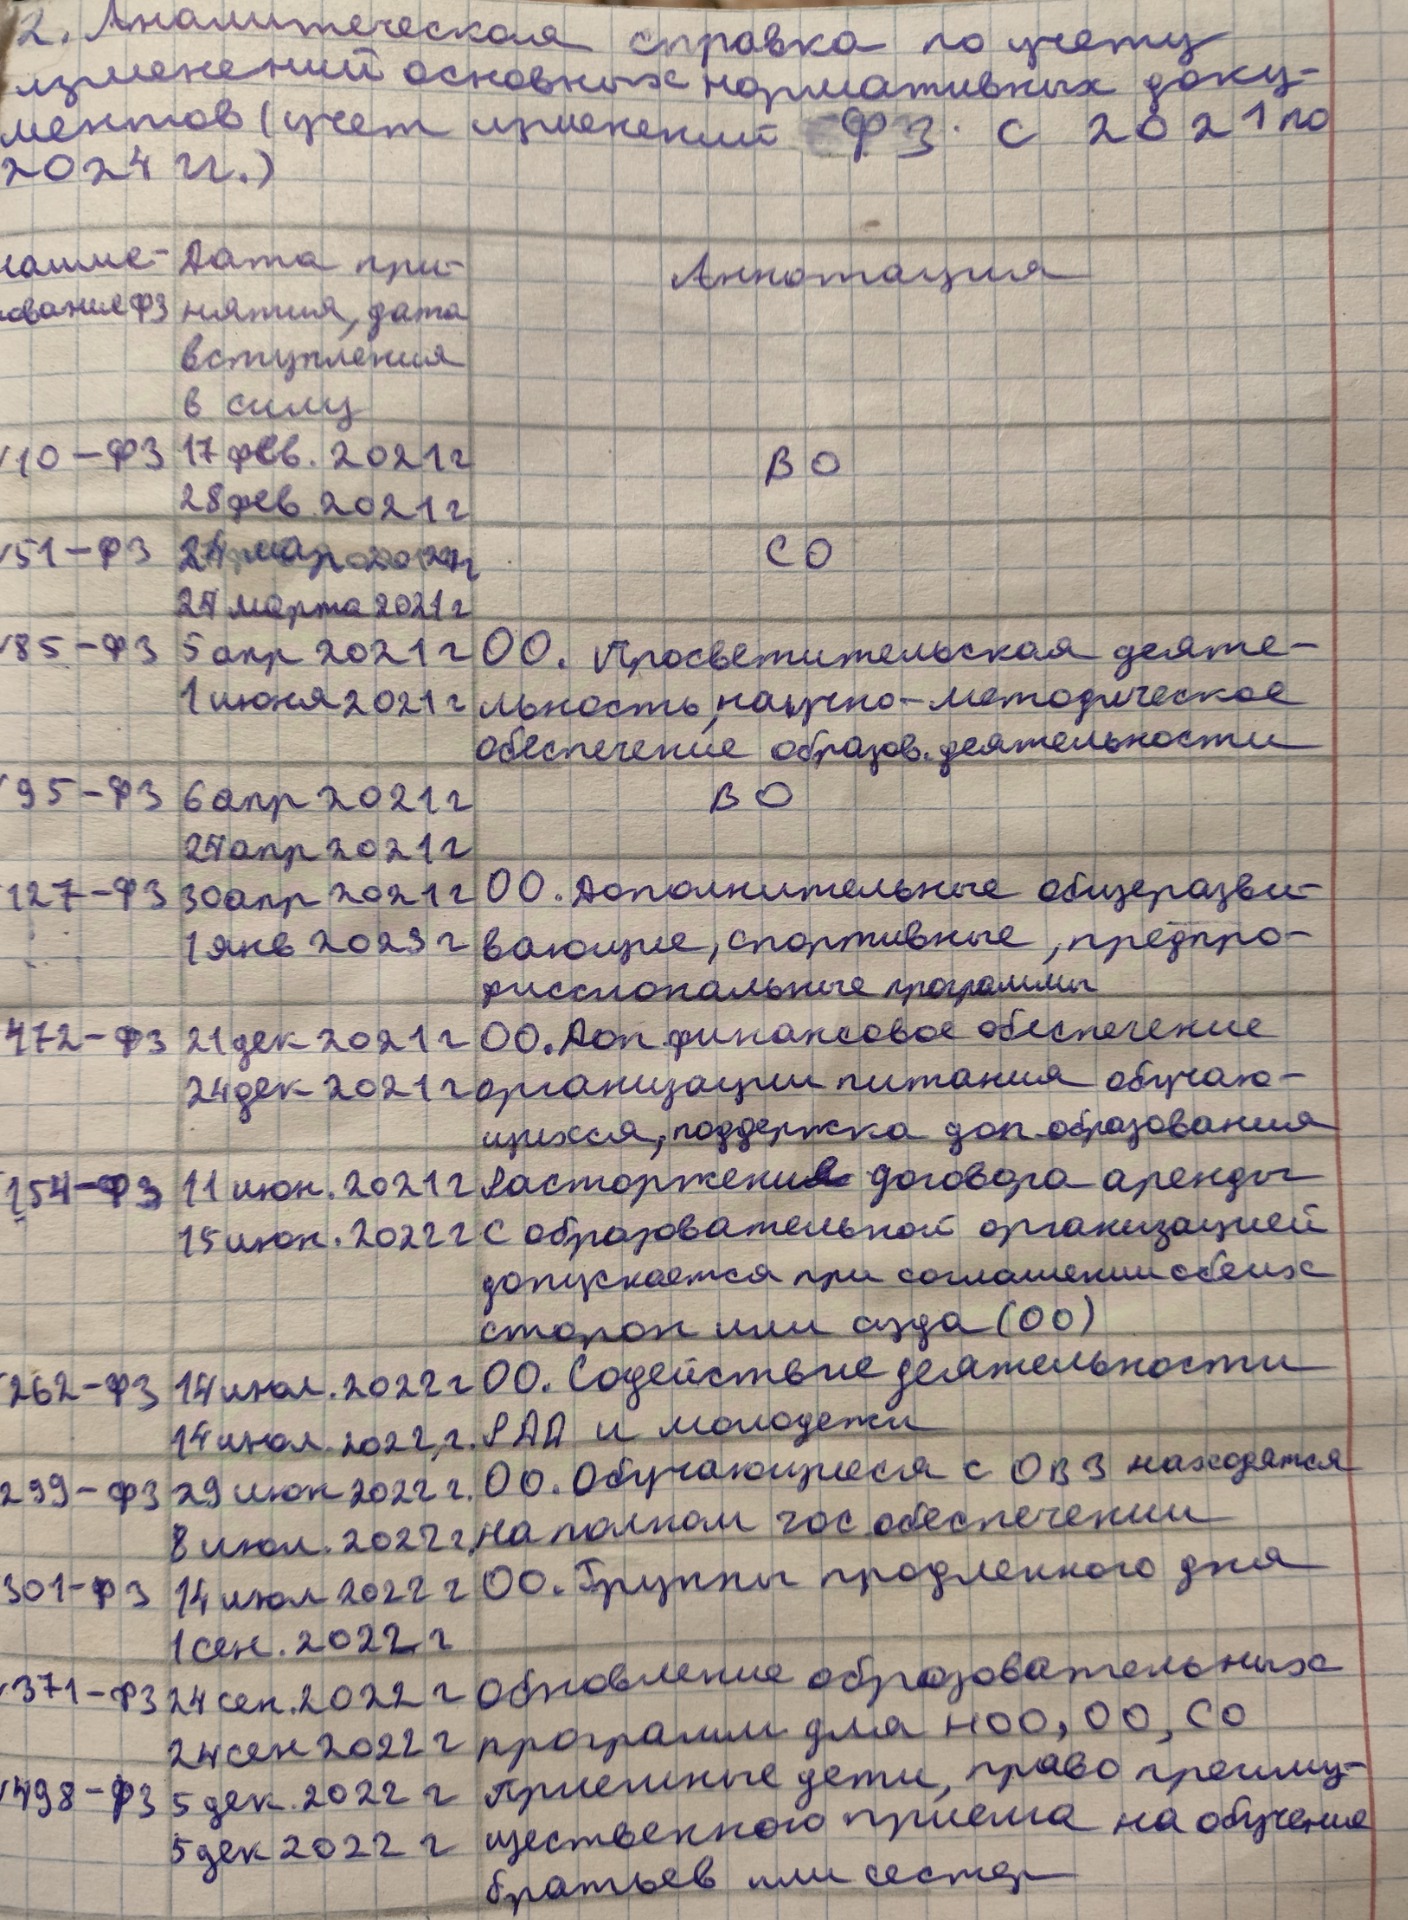 2. Аналитическая справка по учету
изменений основных нормативных доку-
ментов (учет изменений ФЗ с 2021 по
2024 гг.)
наиме- Дата при- Аннотация
нование ФЗ нятия, дата
вступления
в силу
10-ФЗ 17 фев. 2021г ВО
28 фев. 2021г
51-ФЗ 2021г СО
24 марта 2021г
85-ФЗ 5 апр 2021г ОО. Просветительская деяте-
1 июня 2021г льность, научно-методическое
обеспечение образов. деятельности
95-ФЗ 6 апр 2021г ВО
24 апр 2021г
127-ФЗ 30 апр 2021г ОО. Дополнительные общеразви-
1 янв 2023г вающие, спортивные, предпро-
фиссиональные программы
472-ФЗ 21 дек 2021г ОО. Доп финансовое обеспечение
24 дек 2021г организации питания обучаю-
щихся, поддержка доп. образования
154-ФЗ 11 июн. 2021г Расторжение договора аренды
15 июн. 2022г с образовательной организацией
допускается при соглашении обеих
сторон или суда (ОО)
262-ФЗ 14 июл. 2022г ОО. Содействие деятельности
14 июл. 2022г. РДД и молодежи
299-ФЗ 29 июн 2022г. ОО. Обучающиеся с ОВЗ находятся
8 июл. 2022г. на полном гос. обеспечении
301-ФЗ 14 июл 2022г ОО. Группы продленного дня
1 сен. 2022г
371-ФЗ 24 сен. 2022г Обновление образовательных
24 сен 2022г программ для НОО, ОО, СО
498-ФЗ 5 дек. 2022г Приемные дети, право преиму-
5 дек 2022г щественного приема на обучение
братьев или сестер